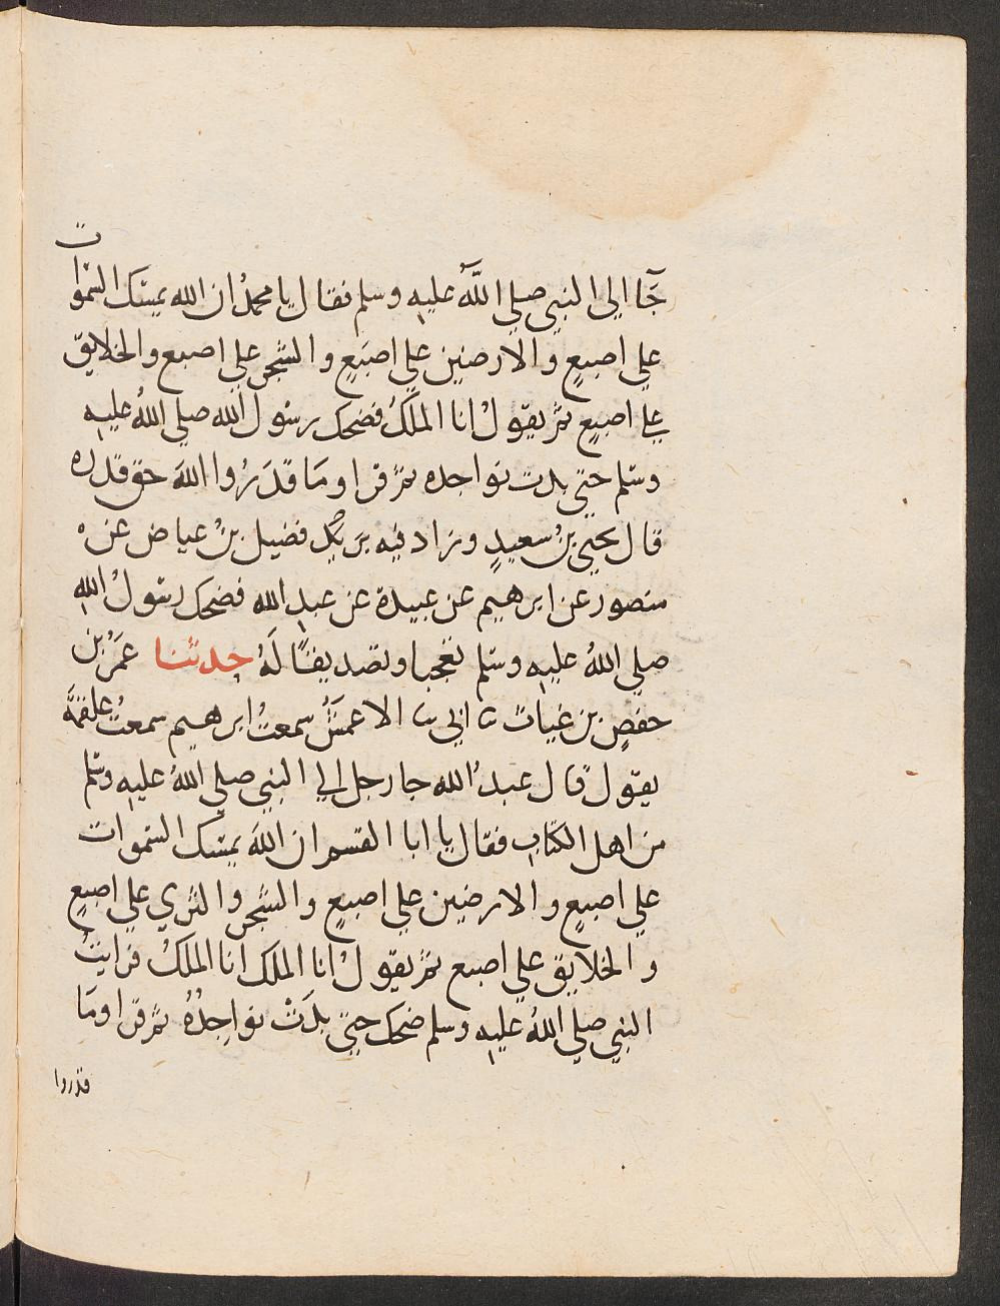 جَا الي النبي صلي اللَّه عليهِ وسلم فقال يا محمدُ ان الله يمسك السموات
علي اصبعٍ والارضين علي اصبَعٍ والشجر علي اصبع والخلايق
علي اصبعٍ ثم يقولُ انا الملكُ فضحك رسول الله صلي اللهُ عليهِ
وسلم حتي بدت نواجده ثم قرا ومَا قدَرُوا اللهَ حق قدره
قال يحيي بنُ سعيدٍ وزاد فيه فضيل بنُ عياض عن
منصور عن ابرهيم عن عبيدة عن عبدِ الله فضحك رسولُ اللهِ
صلي اللهُ عليهِ وسلم تعجبا وتصديقًا لَهُ حدثنا عمَرُ بن
حفصٍ بن غياث ثا ابي ثا الاعمشُ سمعتُ ابرهيم سمعتُ علقمَةَ
يقول قال عبدُ الله جا رجل الي النبي صلي اللهُ عليهِ وسلم
من اهل الكتابِ فقال يا ابا القسم ان اللهَ يمسك السموات
علي اصبعٍ والارضين علي اصبعٍ والشجر والثري علي اصبعٍ
والخلايق علي اصبع ثم يقولُ انا الملك انا الملكُ فرايتُ
النبي صلي اللهُ عليهِ وسلم ضحك حتي بدَتْ نواجِدُهُ ثم قرا ومَا
قدروا